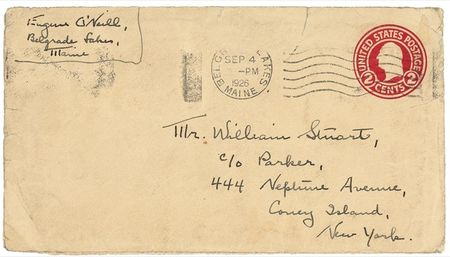 Eugene O'Neill,
Belgrade Lakes,
Maine
BELGRADE LAKES
SEP 4
-PM
1926
MAINE
UNITED STATES POSTAGE
2 CENTS 2
Mr. William Stuart,
c/o Parker,
444 Neptune Avenue,
Coney Island,
New York.